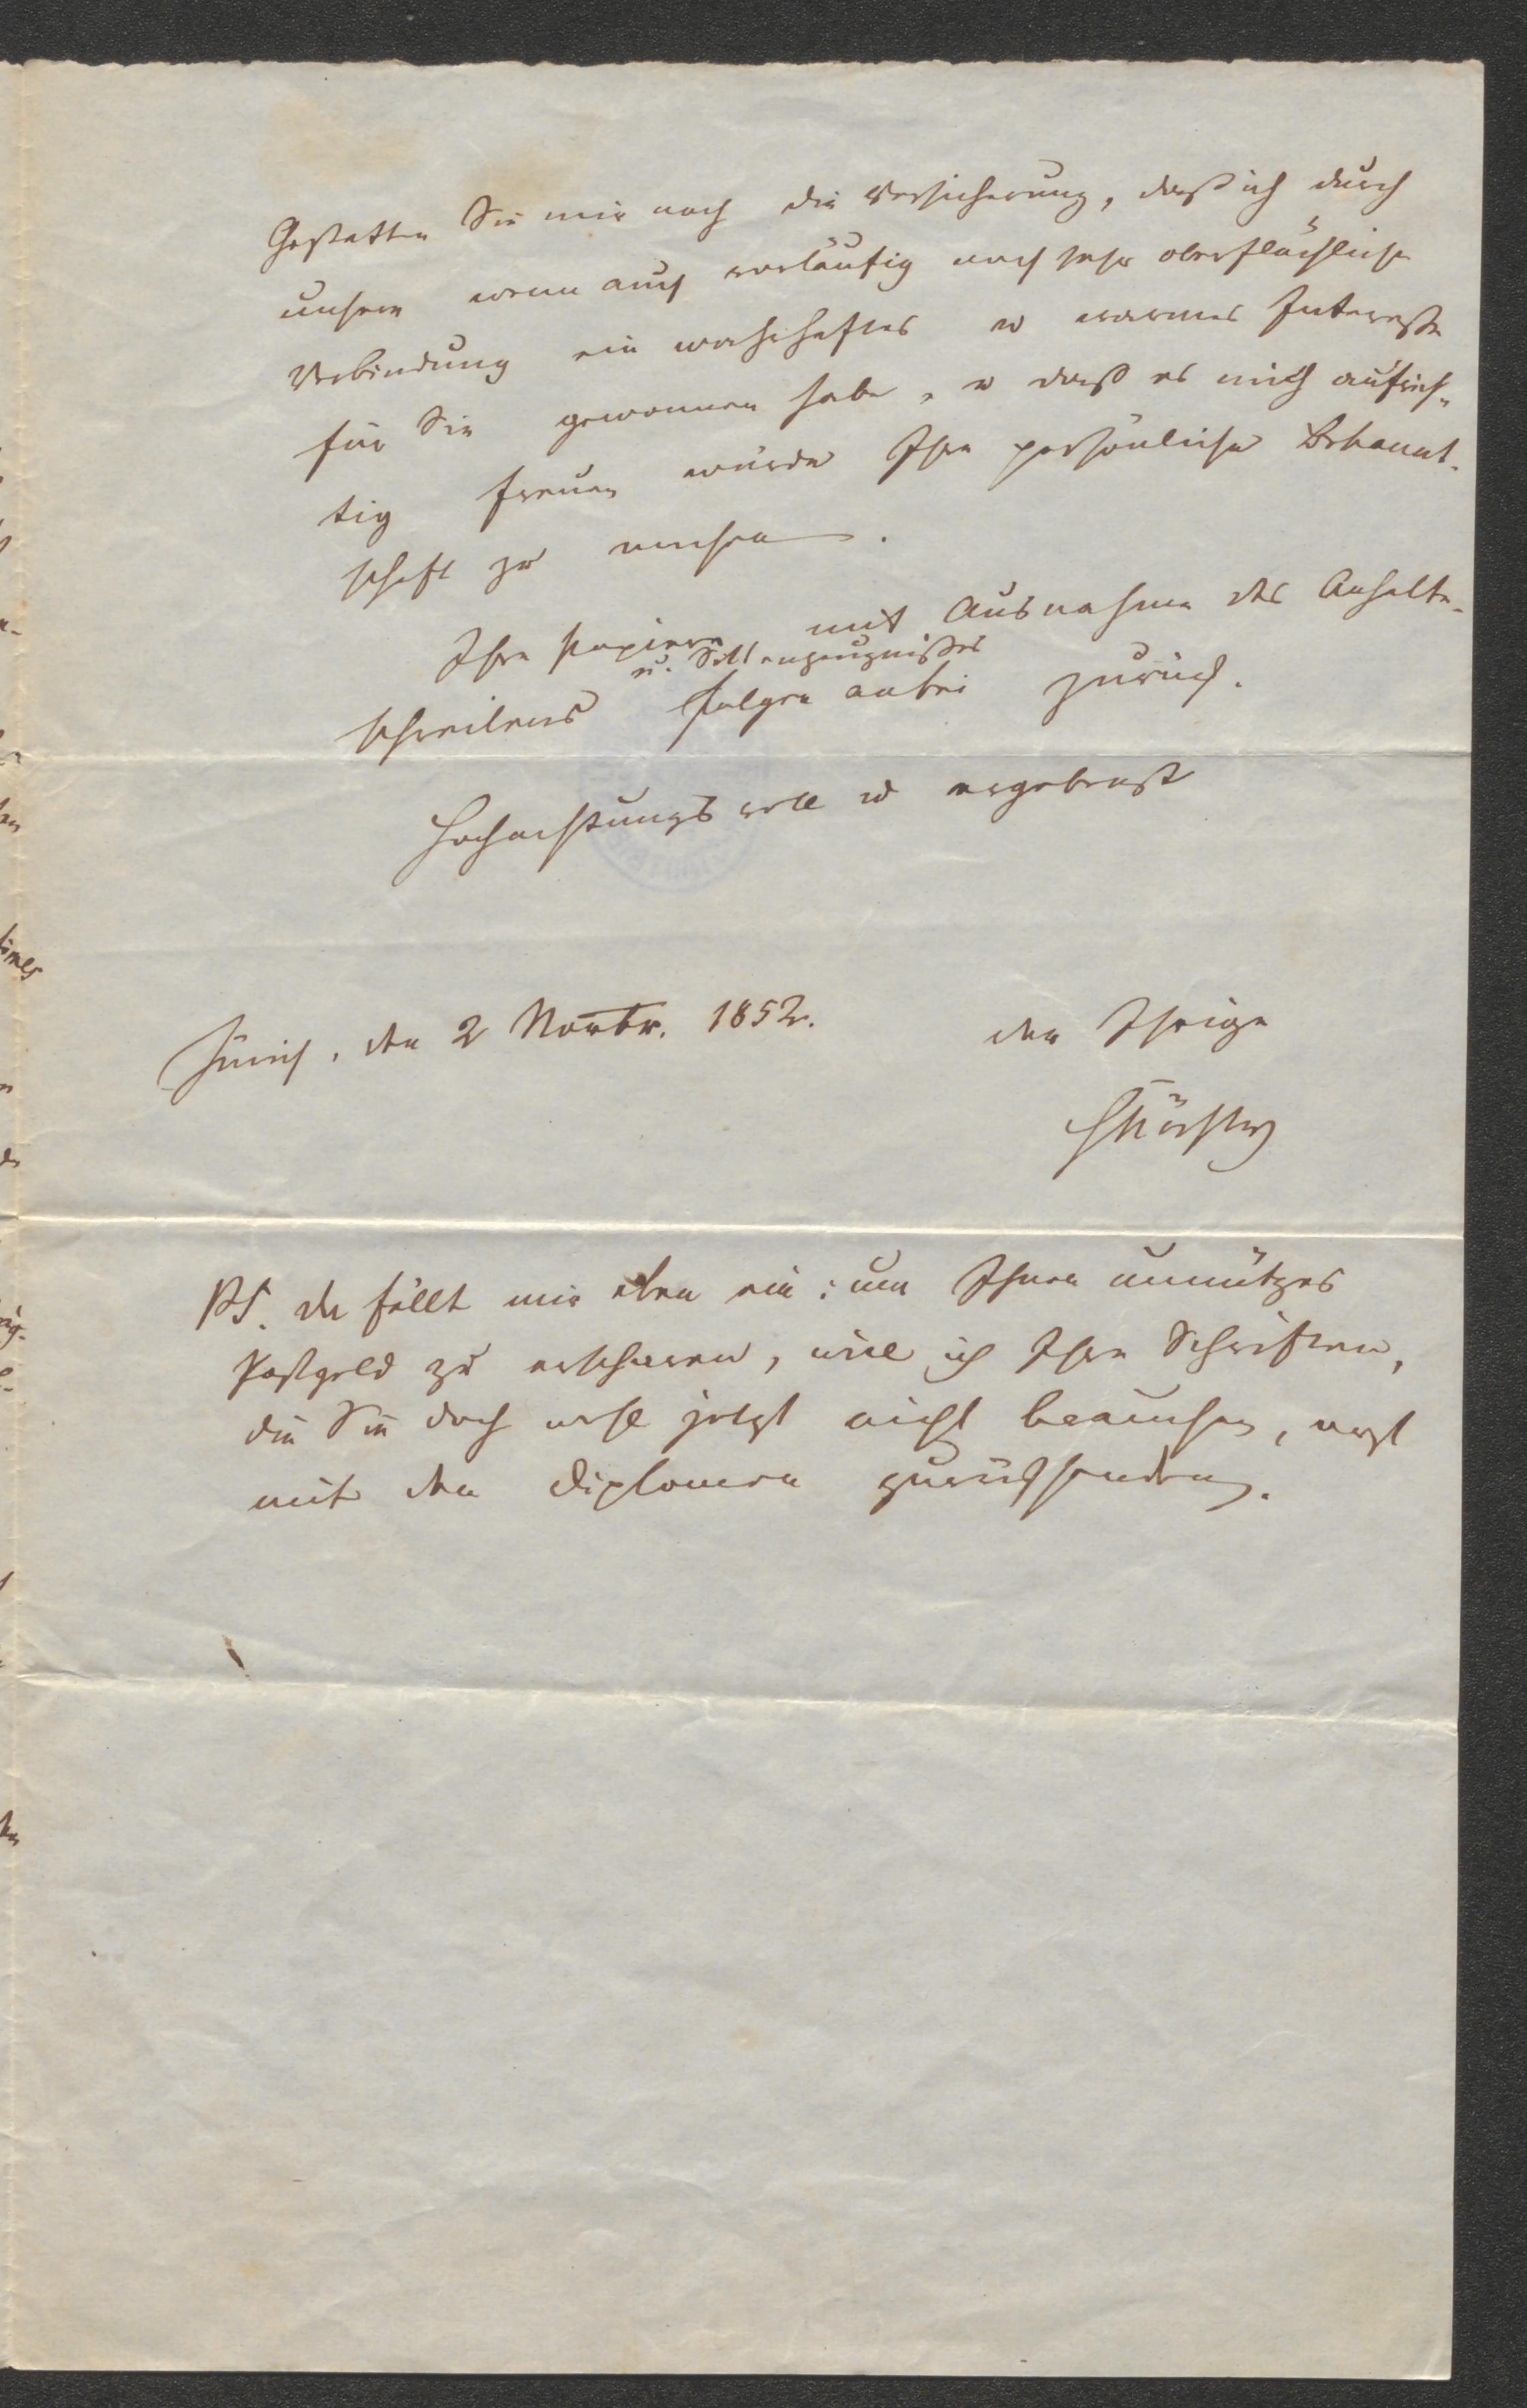 Gestatten Sie mir noch die Versicherung, daß ich durch
unsere wenn auch vorläufig noch sehr oberflächliche
Verbindung ein wahrhaftes u warmes Interesse
für Sie gewonnen habe, u daß es mich aufrich-
tig freuen würde Ihre persönliche Bekannt-
schaft zu machen.
Ihre Papiere, mit Ausnahme des Anhalte-
u. Sittenzeugnißes
schreibens folgen anbei zurück.
Hochachtungsvoll u ergebenst
Zürich, den 2 Novbr. 1852.
der Ihrige
PS. Da fällt mir eben ein: um Ihnen unnützes
Postgeld zu ersparen, will ich Ihre Schriften,
die Sie doch wohl jetzt nicht brauchen, erst
mit den Diplomen zurücksenden.